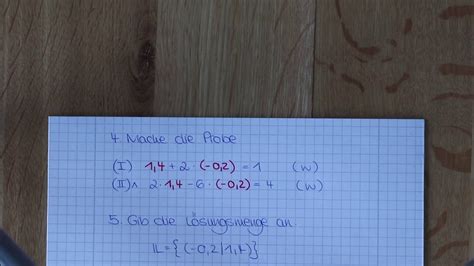 4. Mache die Probe
(I) 1,4 + 2 · (-0,2) = 1 (w)
(II) ∧ 2 · 1,4 - 6 · (-0,2) = 4 (w)
5. Gib die Lösungsmenge an.
𝕃 = {(-0,2 | 1,4)}